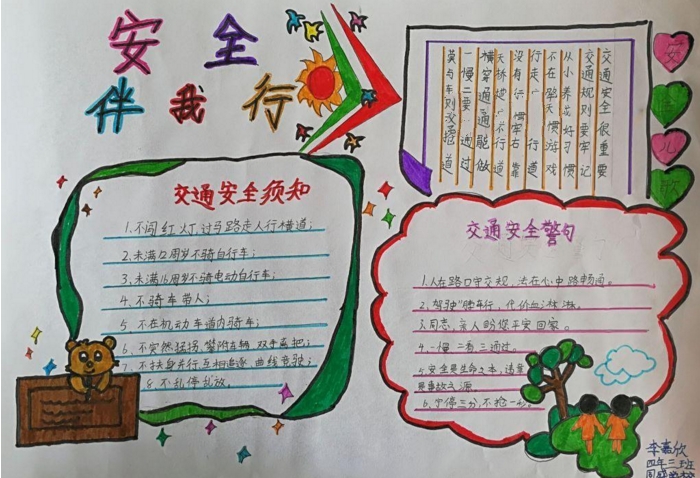 安全
伴我行
交通安全须知
1.不闯红灯,过马路走人行横道;
2.未满12周岁不骑自行车;
3.未满16周岁不骑电动自行车;
4.不骑车带人;
5.不在机动车道内骑车;
6.不突然猛拐,攀附车辆,双手离把;
7.不扶身并行,互相追逐,曲线竞驶;
8.不乱停乱放。
安
全
儿
歌
交通安全很重要
交通规则要牢记
从小养成好习惯
不在路上惯游戏
行走 行道
没有行 惯牢右靠
天桥 不行道
横穿 通能做
一慢二 通过
黄与车则没抢道
交通安全警句
1.人在路口守交规,法在心中路畅通。
2.驾驶"睡"车行,代价血淋淋。
3.同志,亲人盼您平安回家。
4.一慢二看三通过。
5.安全是生命之本,违章
是事故之源。
6.宁停三分,不抢一秒。
李嘉欣
四年三班